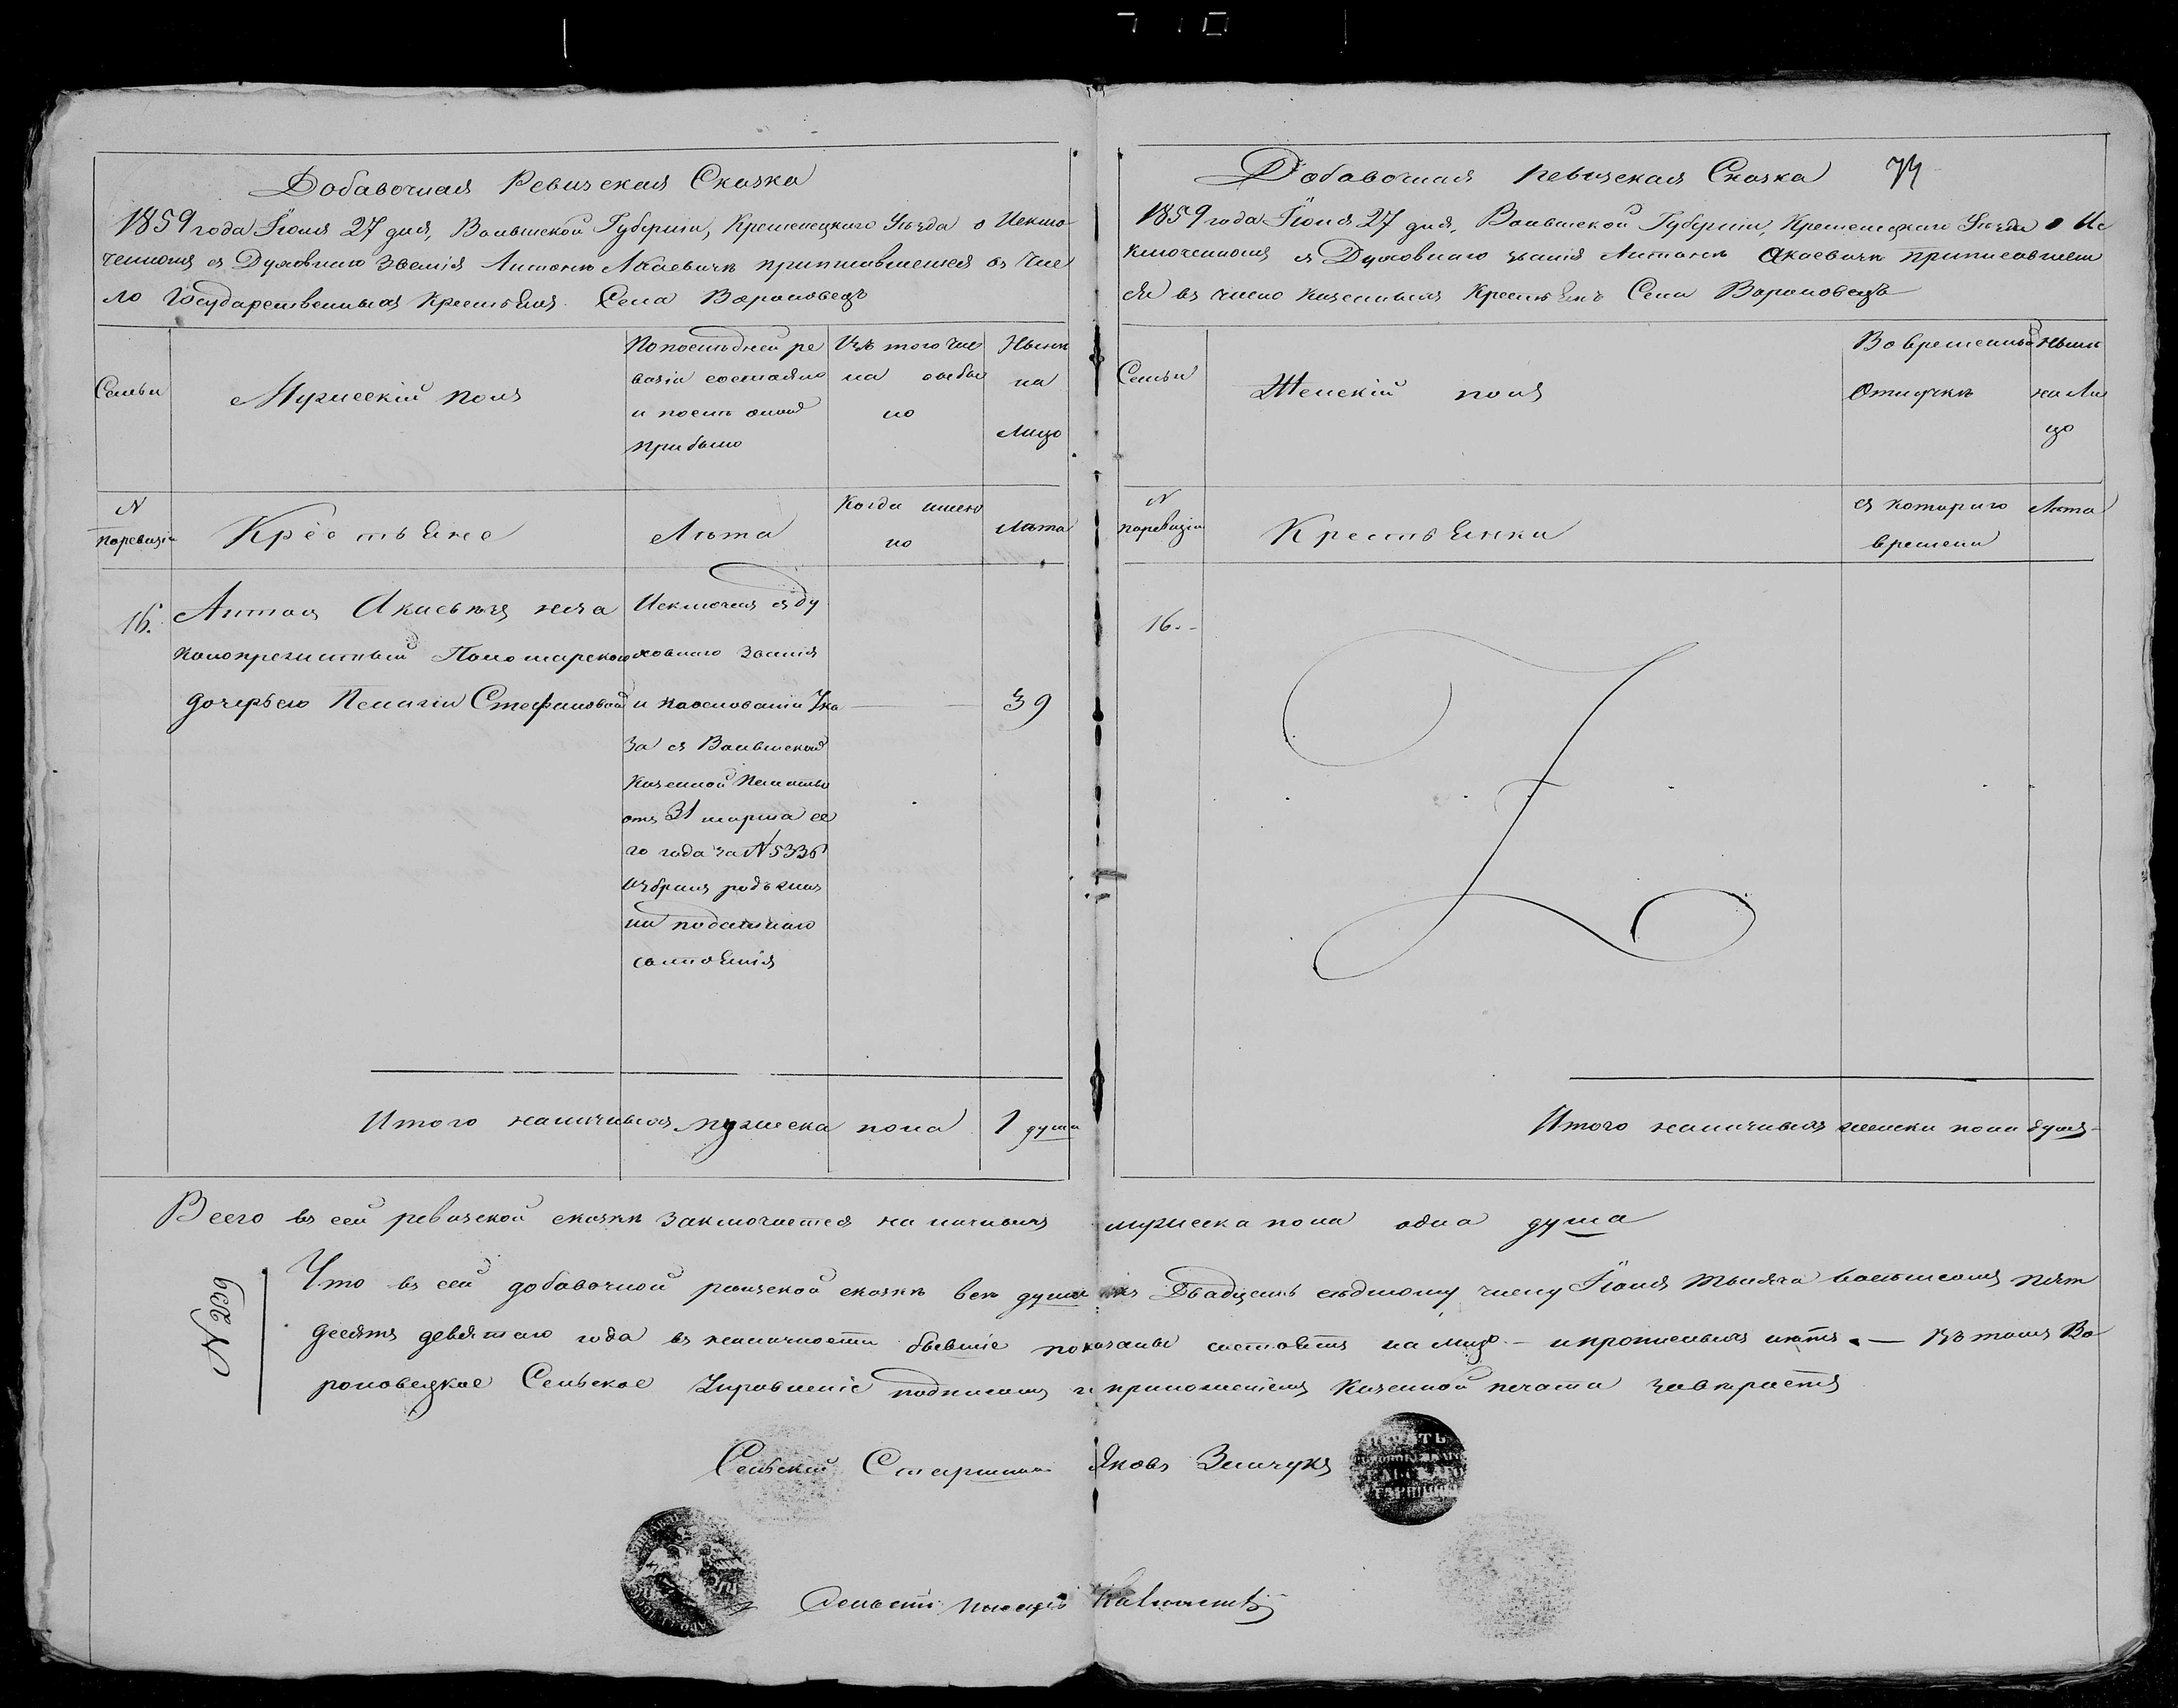 Добавочная Ревизская Сказка
1859 года Іюня 27 дня, Волынской Губерніи, Кременецкаго Уѣзда о Исклю
ченномъ съ Духовнаго званія Антонѣ Акаевичѣ приписавшемся въ чис
ло Государственныхъ Крестьянъ Села Вороновецъ
Семьи
Мужескій полъ
По послѣдней ре
визіи состояло
и послѣ оной
прибыло
Изъ того чис
ла выбы
ло
Нынѣ
на
Лицо
N
поревизіи
Крестьяне
Лѣта
Когда имен
но
Лѣта
16.
Антонъ Акаевичъ
Пономарскою
дочерью Пелагіи Стефановой
Исключенъ съ ду
ховнаго званія
и на основаніи Ука
за съ Волынской
Казенной Палаты
отъ 31 марта се
го года за N 5336
избралъ родъ жиз
ни податнаго
состоянія
39
Итого наличныхъ мужеска пола 1 душа
Добавочная Ревизская Сказка 74
1859 года Іюня 27 дня, Волынской Губерніи, Кременецкаго Уѣзда о Ис
ключенномъ съ Духовнаго званія Антонѣ Акаевичѣ приписавшем
ся въ число казенныхъ Крестьянъ Села Вороновецъ
Семьи
Женскій полъ
Во временной
Отлучкѣ
Нынѣ
на Ли
цо
N
поревизіи
Крестьянки
съ котораго
времени
Лѣта
16.
Итого наличныхъ женска пола душъ
Всего въ сей ревизской сказкѣ заключается наличныхъ мужеска пола одна душа
N 239
Что въ сей добавочной ревзской сказкѣ всѣ души къ Двадцать седьмому числу Іюня тысяча восемьсотъ пят
десятъ девятаго года въ наличности бывшіе показаны состоятъ на лицо – и прописныхъ нѣтъ. — Въ томъ Во
роновецкое Сельское Управленіе подписомъ и приложеніемъ Казенной печати
Сельскій Старшина Яковъ
Сельскій Писарь